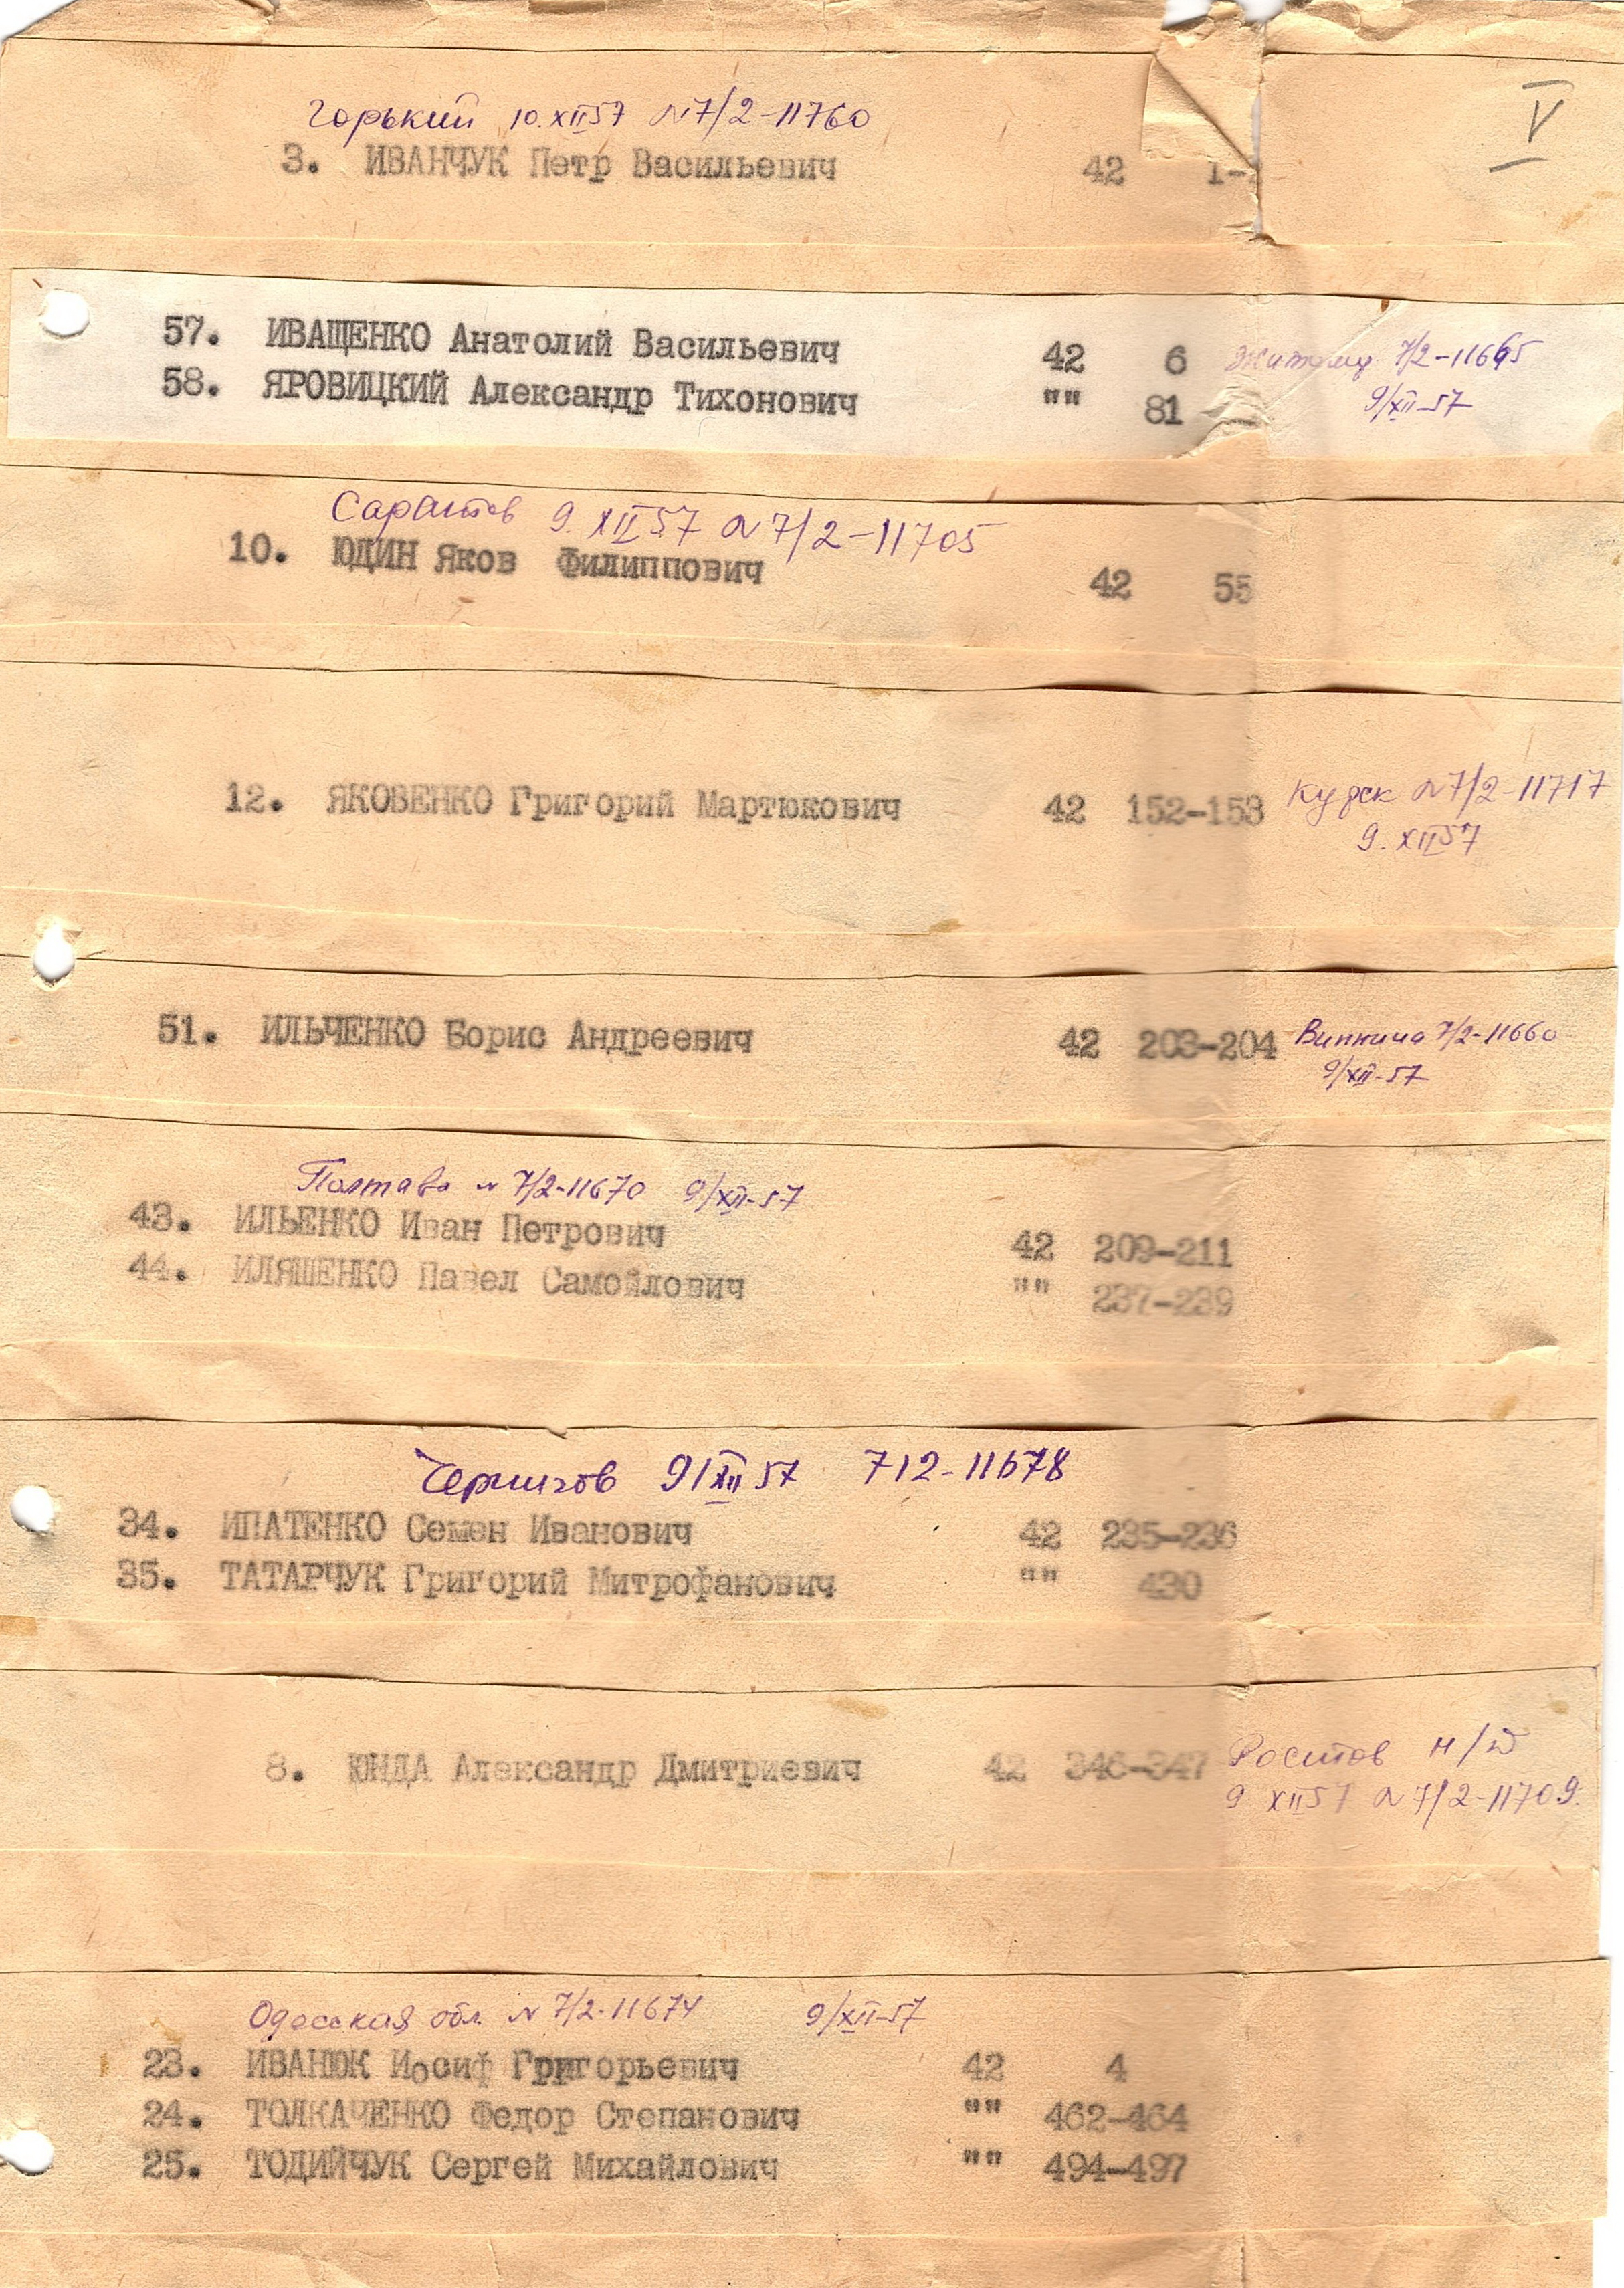 V
Горький 10.XII57 N7/2-11760
3. ИВАНЧУК Петр Васильевич 42 1-
57. ИВАЩЕНКО Анатолий Васильевич 42 6 Житомир 7/2-11665
58. ЯРОВИЦКИЙ Александр Тихонович "" 81 9/XII-57
Саратов 9.XII57 N7/2-11705
10. ЮДИН Яков Филиппович 42 55
12. ЯКОВЕНКО Григорий Мартюкович 42 152-153 Курск N7/2-11717
9.XII57
51. ИЛЬЧЕНКО Борис Андреевич 42 203-204 Винница 7/2-11660
9/XII-57
Полтава N 7/2-11670 9/XII-57
43. ИЛЬЕНКО Иван Петрович 42 209-211
44. ИЛЯШЕНКО Павел Самойлович "" 237-239
Чернигов 9/XII57 7/2-11678
34. ИПАТЕНКО Семен Иванович 42 235-236
35. ТАТАРЧУК Григорий Митрофанович "" 430
8. ЮНДА Александр Дмитриевич 42 346-347 Ростов н/Д
9 XII57 N7/2-11709.
Одесская обл. N 7/2-11674 9/XII-57
23. ИВАНЮК Иосиф Григорьевич 42 4
24. ТОЛКАЧЕНКО Федор Степанович "" 462-464
25. ТОДИЙЧУК Сергей Михайлович "" 494-497